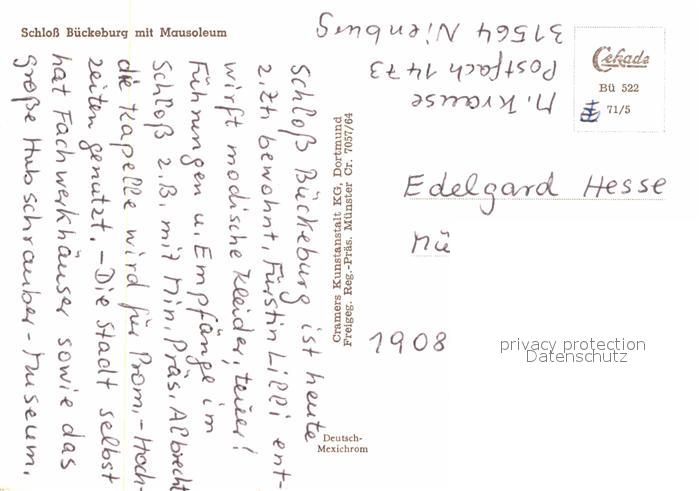 Schloß Bückeburg mit Mausoleum
Schloß Bückeburg ist heute
z. Zt. bewohnt, Fürstin Lilli ent-
wirft modische Kleider, teuer!
Führungen u. Empfänge im
Schloß z.B. mit Min. Präs. Albrecht
die Kapelle wird für Prom.-Hoch-
zeiten genutzt. – Die Stadt selbst
hat Fachwerkhäuser sowie das
große Hubschrauber-Museum.
Cramers Kunstanstalt KG, Dortmund
Freigeg. Reg.-Präs. Münster Cr. 7057/64
Deutsch-
Mexichrom
M. Krause
Postfach 1473
31564 Nienburg
Cekade
Bü 522
71/5
Edelgard Hesse
Mü
1908
privacy protection
Datenschutz